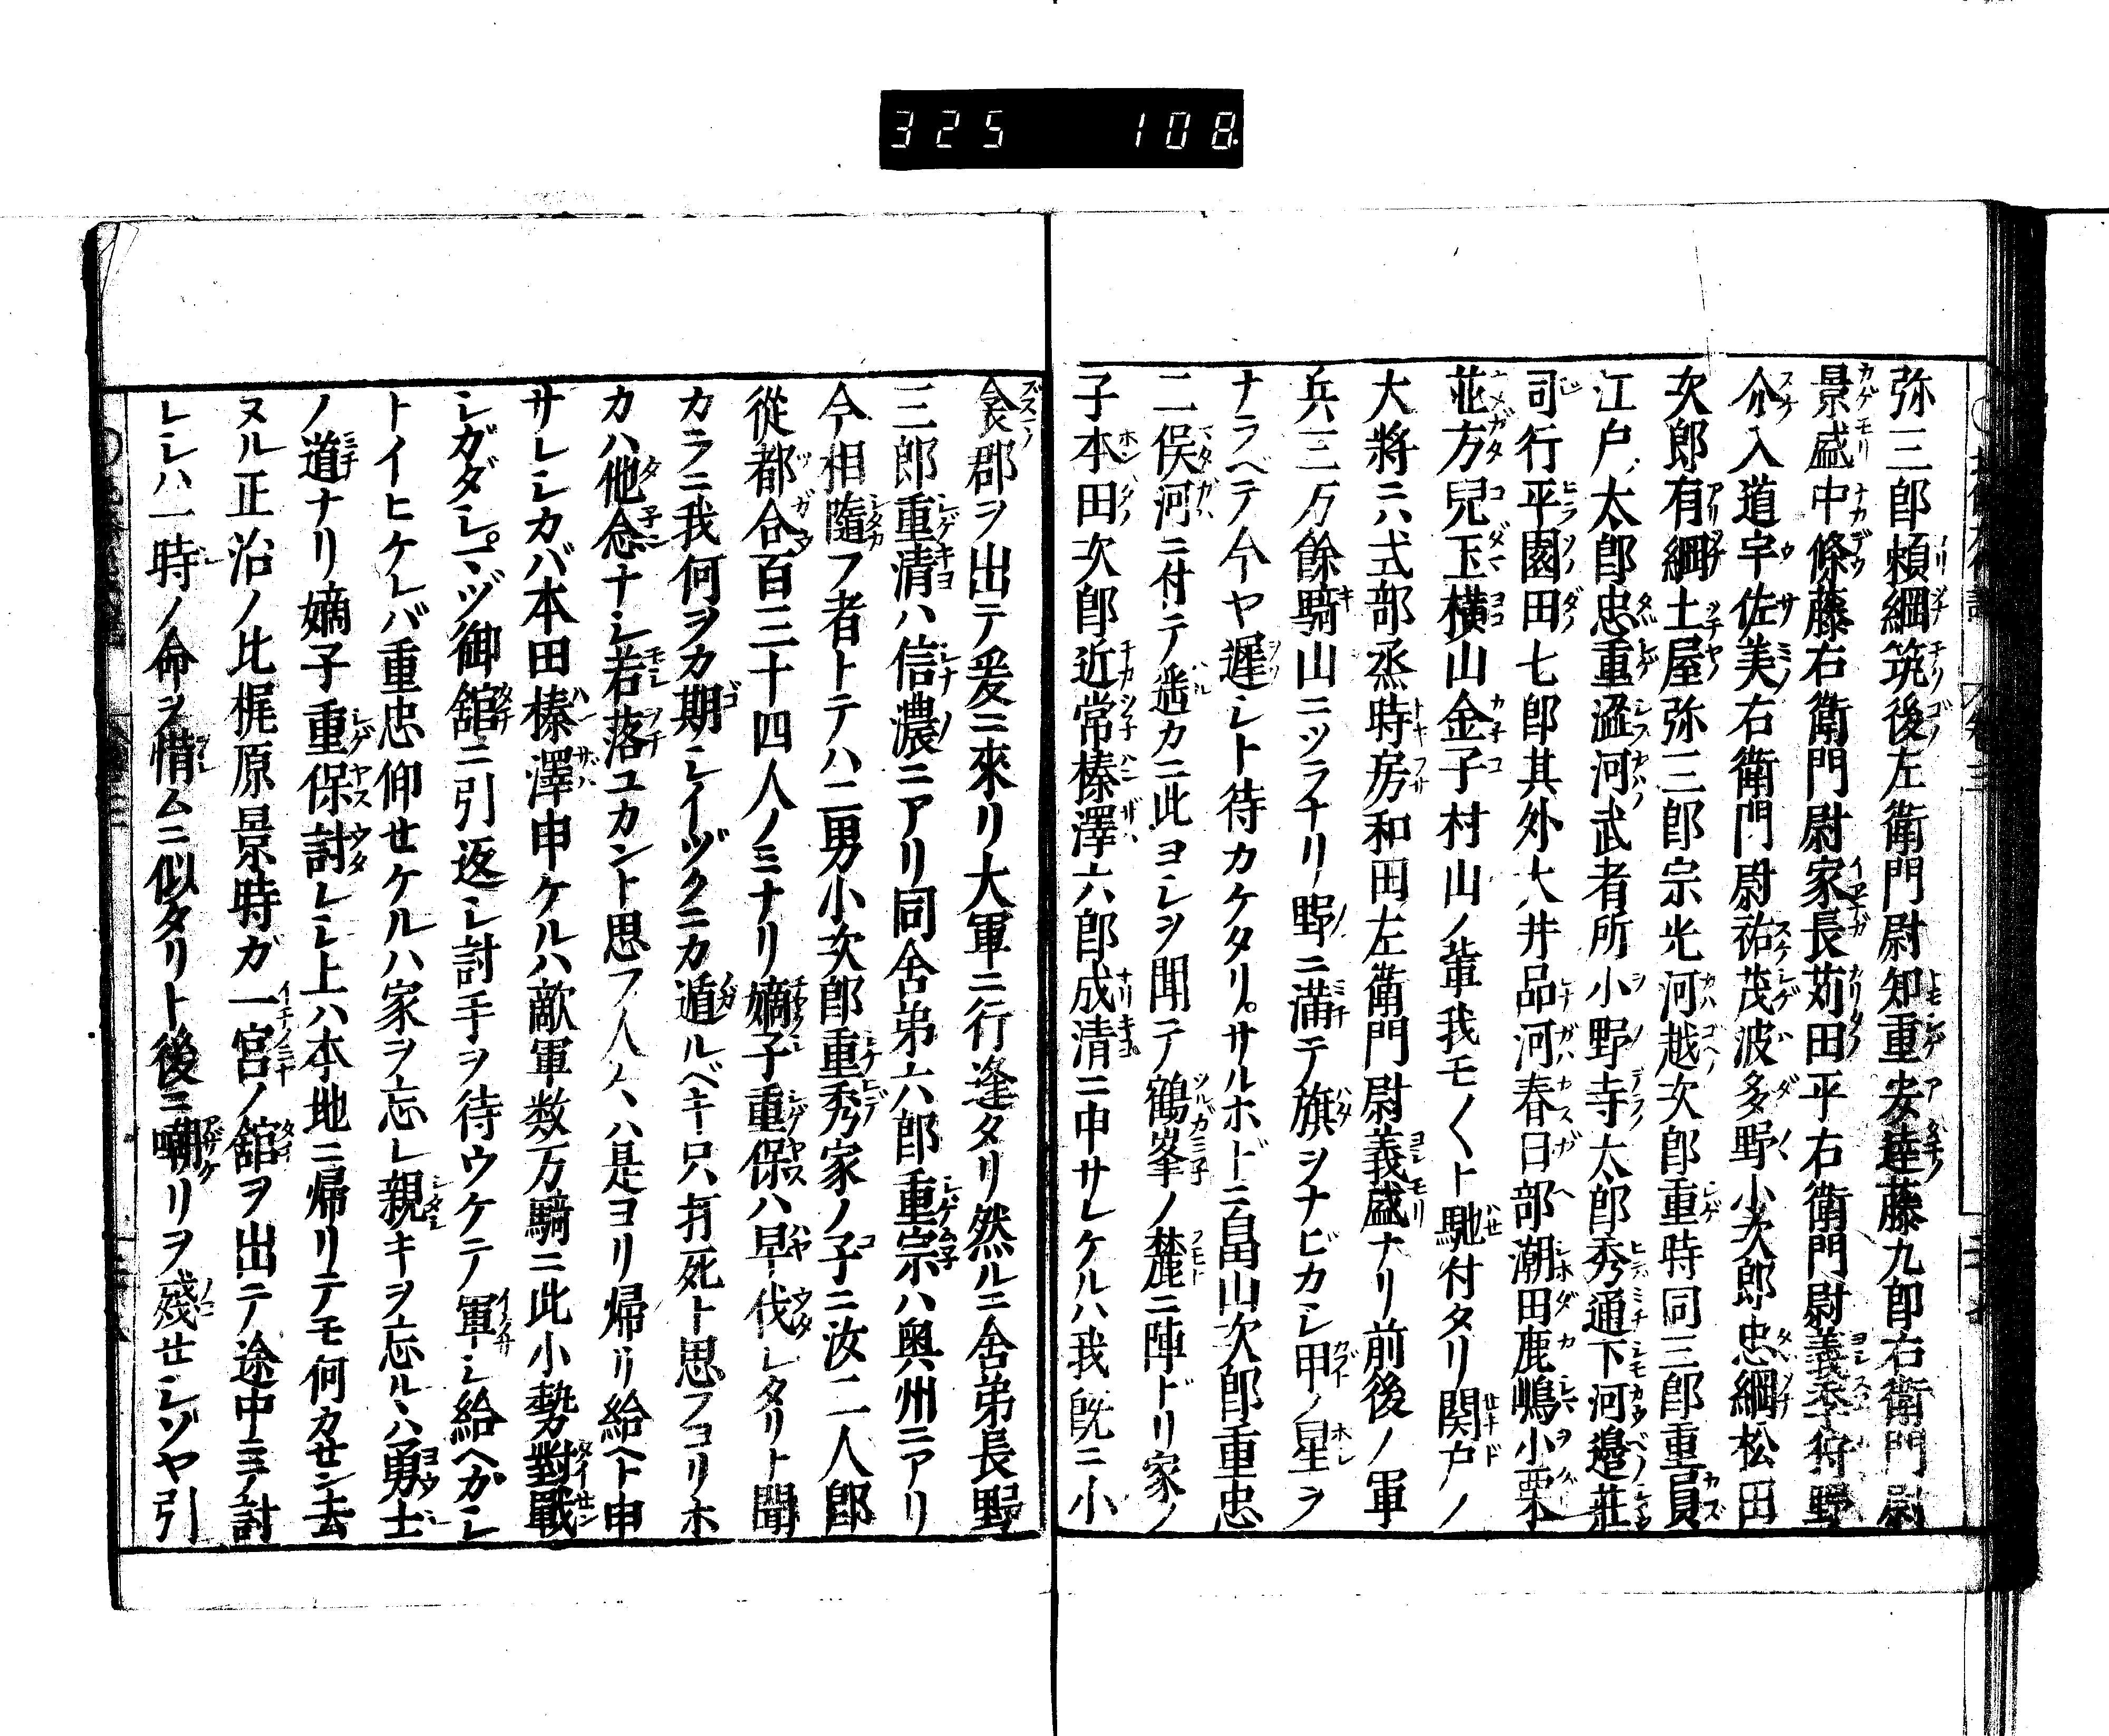 325 108
弥三郎頼綱筑後左衛門尉知重安達藤九郎右衛門尉
景盛中條藤右衛門尉家長苅田平右衛門尉義季狩野
介入道宇佐美右衛門尉祐茂波多野小次郎忠綱松田
次郎有綱土屋弥三郎宗光河越次郎重時同三郎重員
江戸太郎忠重澁河武者所小野寺太郎秀通下河邉莊
司行平園田七郎其外大井品河春日部潮田鹿嶋小栗
並方兒玉横山金子村山ノ輩我モ〱ト馳付タリ関戸ノ
大將ニハ式部丞時房和田左衛門尉義盛ナリ前後ノ軍
兵三万餘騎山ニツラナリ野ニ満テ旗ヲナビカシ甲ノ星ヲ
ナラベテ今ヤ遲シト待カケタリ。サルホドニ畠山次郎重忠
二俣河ニ付テ遙カニ此ヨシヲ聞テ鶴峯ノ麓ニ陣ドリ家ノ
子本田次郎近常榛澤六郎成清ニ申サレケルハ我既ニ小
衾郡ヲ出テ爰ニ來リ大軍ニ行逢タリ然ルニ舎弟長野
三郎重清ハ信濃ニアリ同舎弟六郎重宗ハ奥州ニアリ
今相隨フ者トテハ二男小次郎重秀家ノ子ニ汝二人郎
從都合百三十四人ノミナリ嫡子重保ハ早伐レタリト聞
カラニ我何ヲカ期シイヅクニカ遁ルベキ只打死ト思フヨリホ
カハ他念ナシ若落ユカント思フ人々ハ是ヨリ帰リ給ヘト申
サレシカバ本田榛澤申ケルハ敵軍数万騎ニ此小勢對戰
シガダシ。マヅ御舘ニ引返シ討手ヲ待ウケテ軍シ給ヘカシ
トイヒケレバ重忠仰セケルハ家ヲ忘レ親キヲ忘ルヽハ勇士
ノ道ナリ嫡子重保討レシ上ハ本地ニ帰リテモ何カセン去
ヌル正治ノ比梶原景時ガ一宮ノ舘ヲ出テ途中ニテ討
レシハ一時ノ命ヲ惜ムニ似タリト後ニ嘲リヲ殘セシゾヤ引